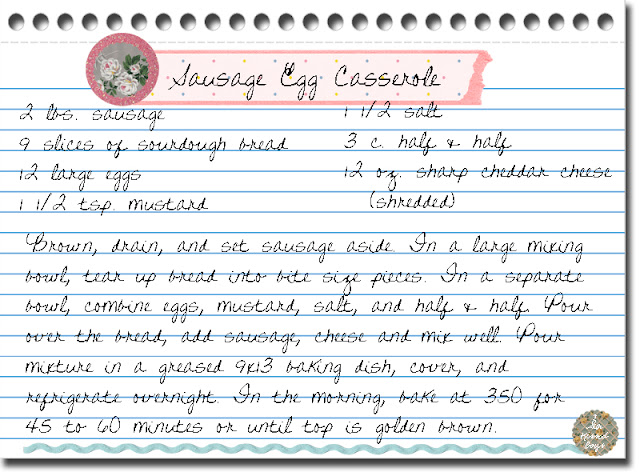 Sausage Egg Casserole
2 lbs. sausage
9 slices of sourdough bread
12 large eggs
1 1/2 tsp. mustard
1 1/2 salt
3 c. half & half
12 oz. sharp cheddar cheese
(shredded)
Brown, drain, and set sausage aside. In a large mixing
bowl, tear up bread into bite size pieces. In a separate
bowl, combine eggs, mustard, salt, and half & half. Pour
over the bread, add sausage, cheese and mix well. Pour
mixture in a greased 9x13 baking dish, cover, and
refrigerate overnight. In the morning, bake at 350 for
45 to 60 minutes or until top is golden brown.